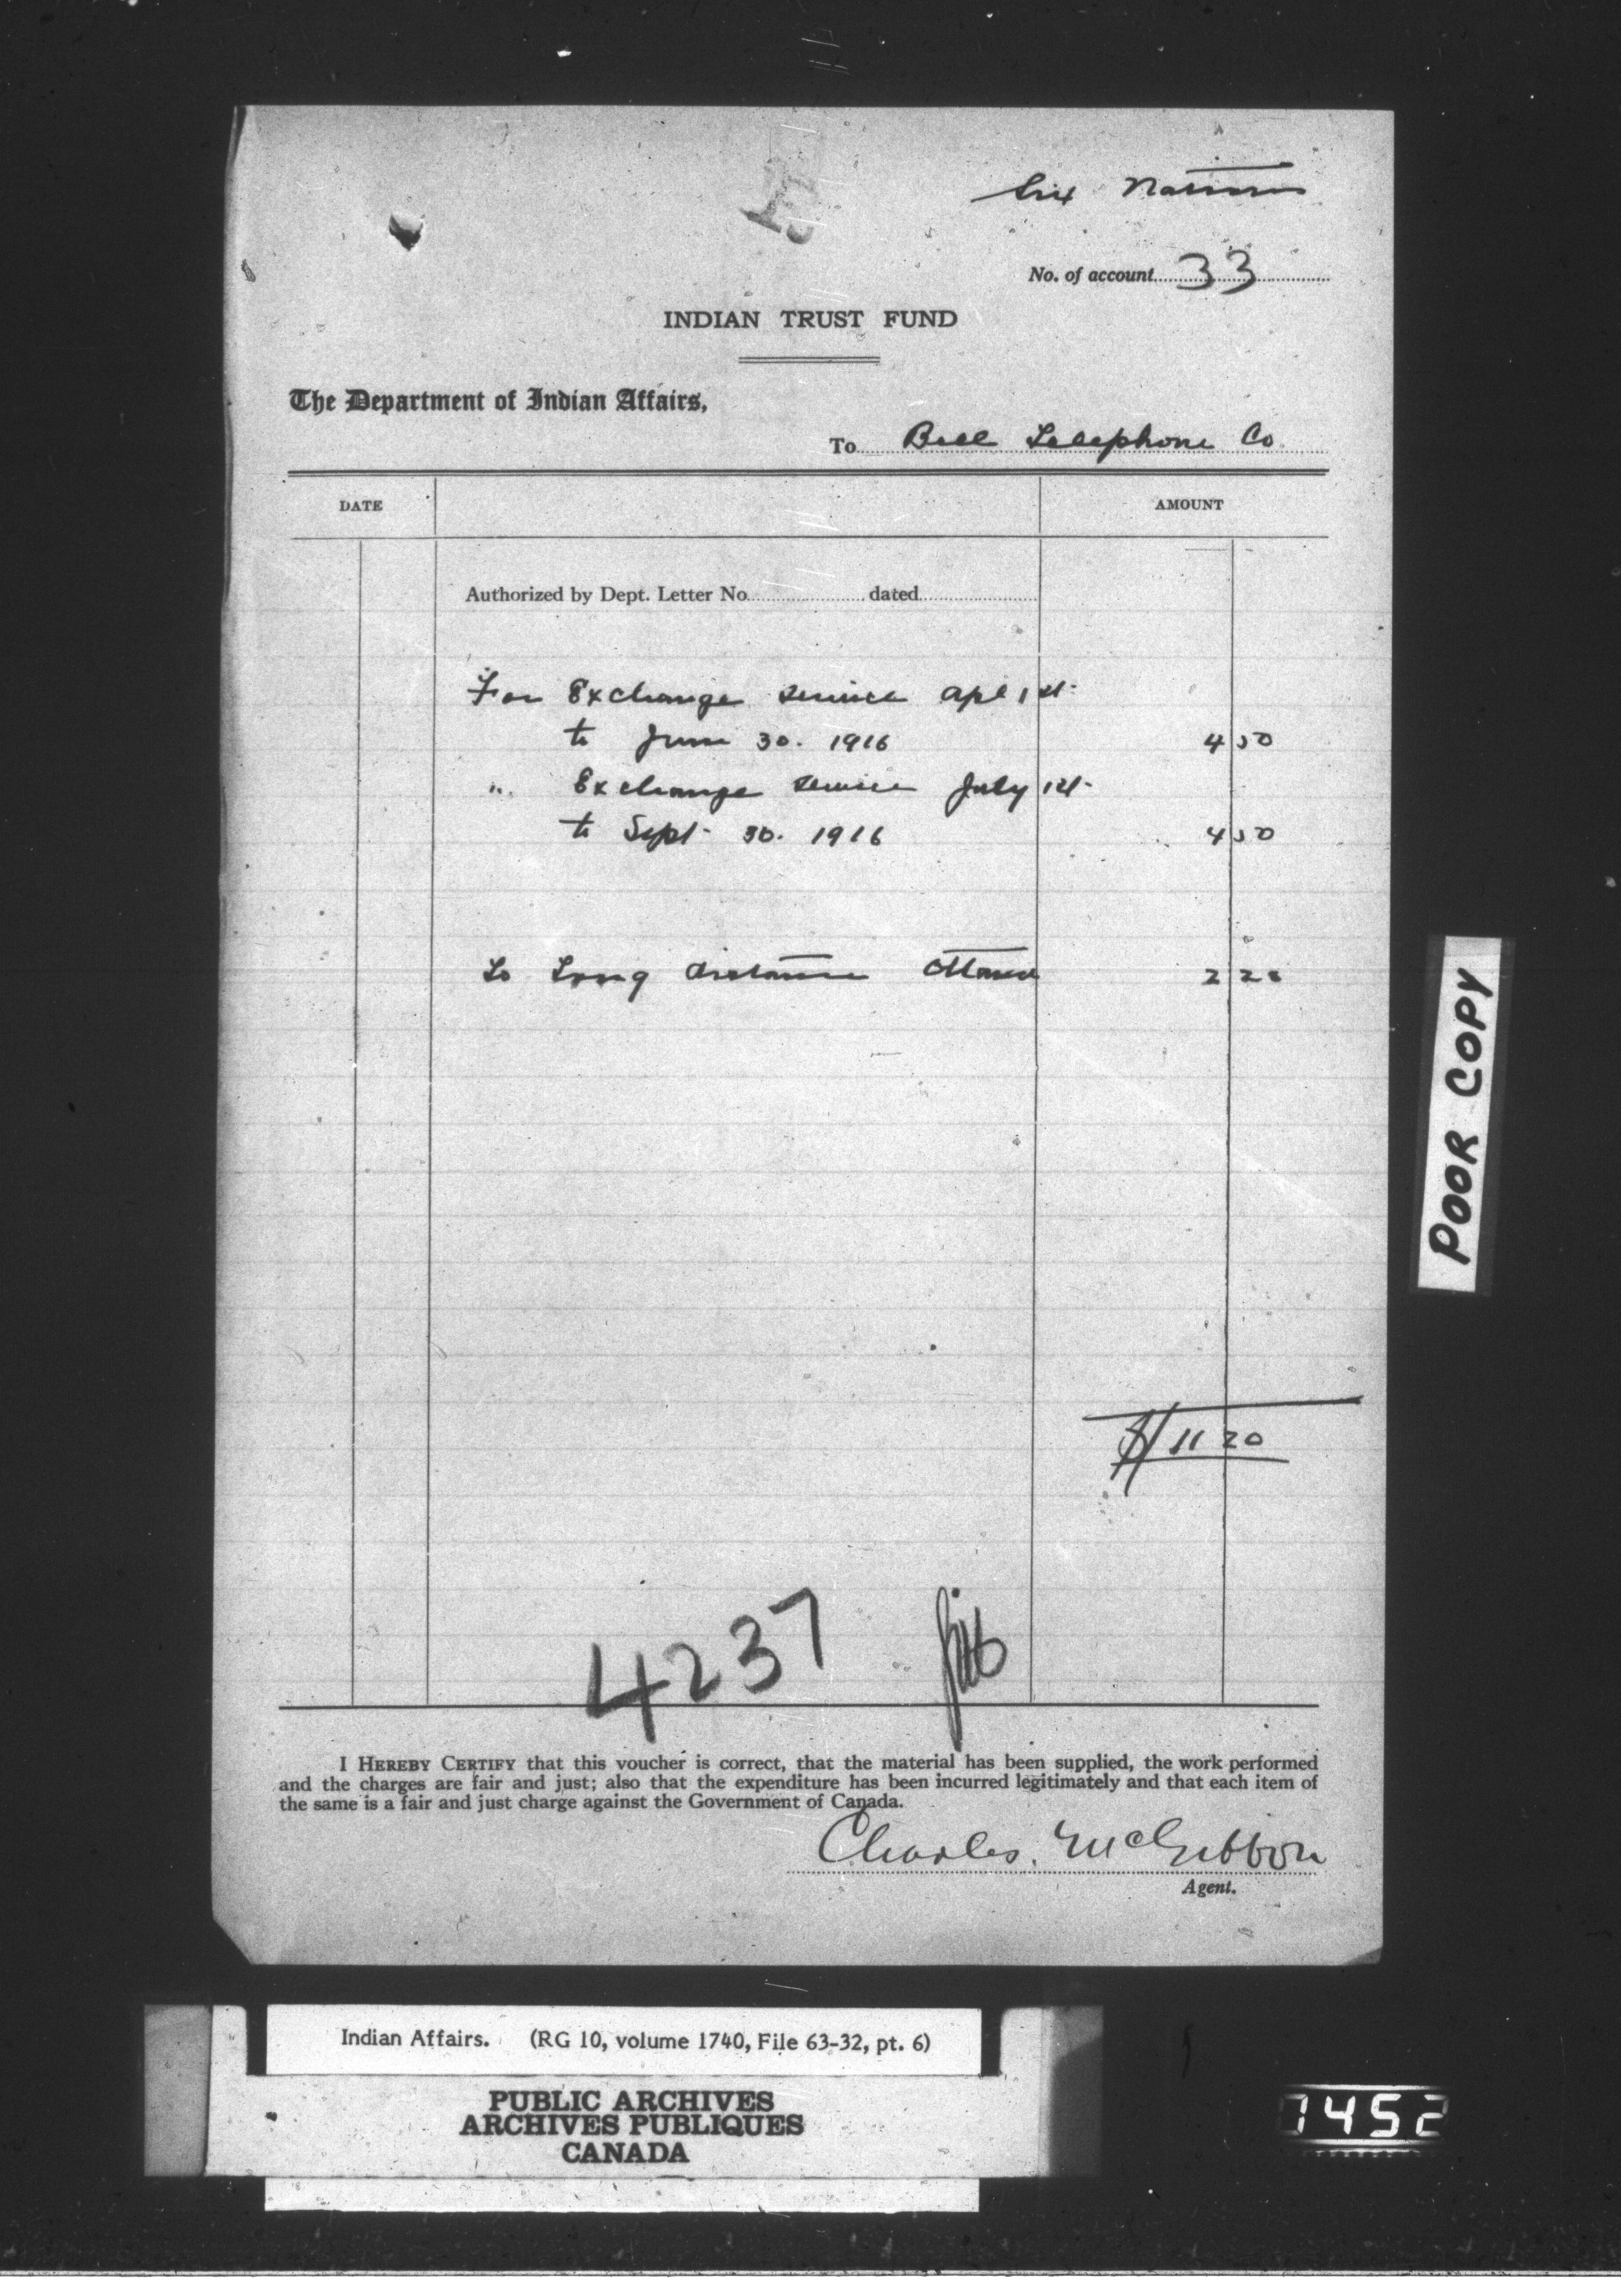 Six Nations
No. of account 33
INDIAN TRUST FUND
The Department of Indian Affairs,
To Bell Telephone Co.
DATE AMOUNT
Authorized by Dept. Letter No. dated
For Exchange service Apl 1st
to June 30. 1916 4 50
" Exchange service July 1st
to Sept 30. 1916 4 50
To Long distance Ottawa 2 20
$11 20
4237
I HEREBY CERTIFY that this voucher is correct, that the material has been supplied, the work performed
and the charges are fair and just; also that the expenditure has been incurred legitimately and that each item of
the same is a fair and just charge against the Government of Canada.
Charles McGibbon
Agent.
POOR COPY
Indian Affairs. (RG 10, volume 1740, File 63-32, pt. 6)
PUBLIC ARCHIVES
ARCHIVES PUBLIQUES
CANADA
1452